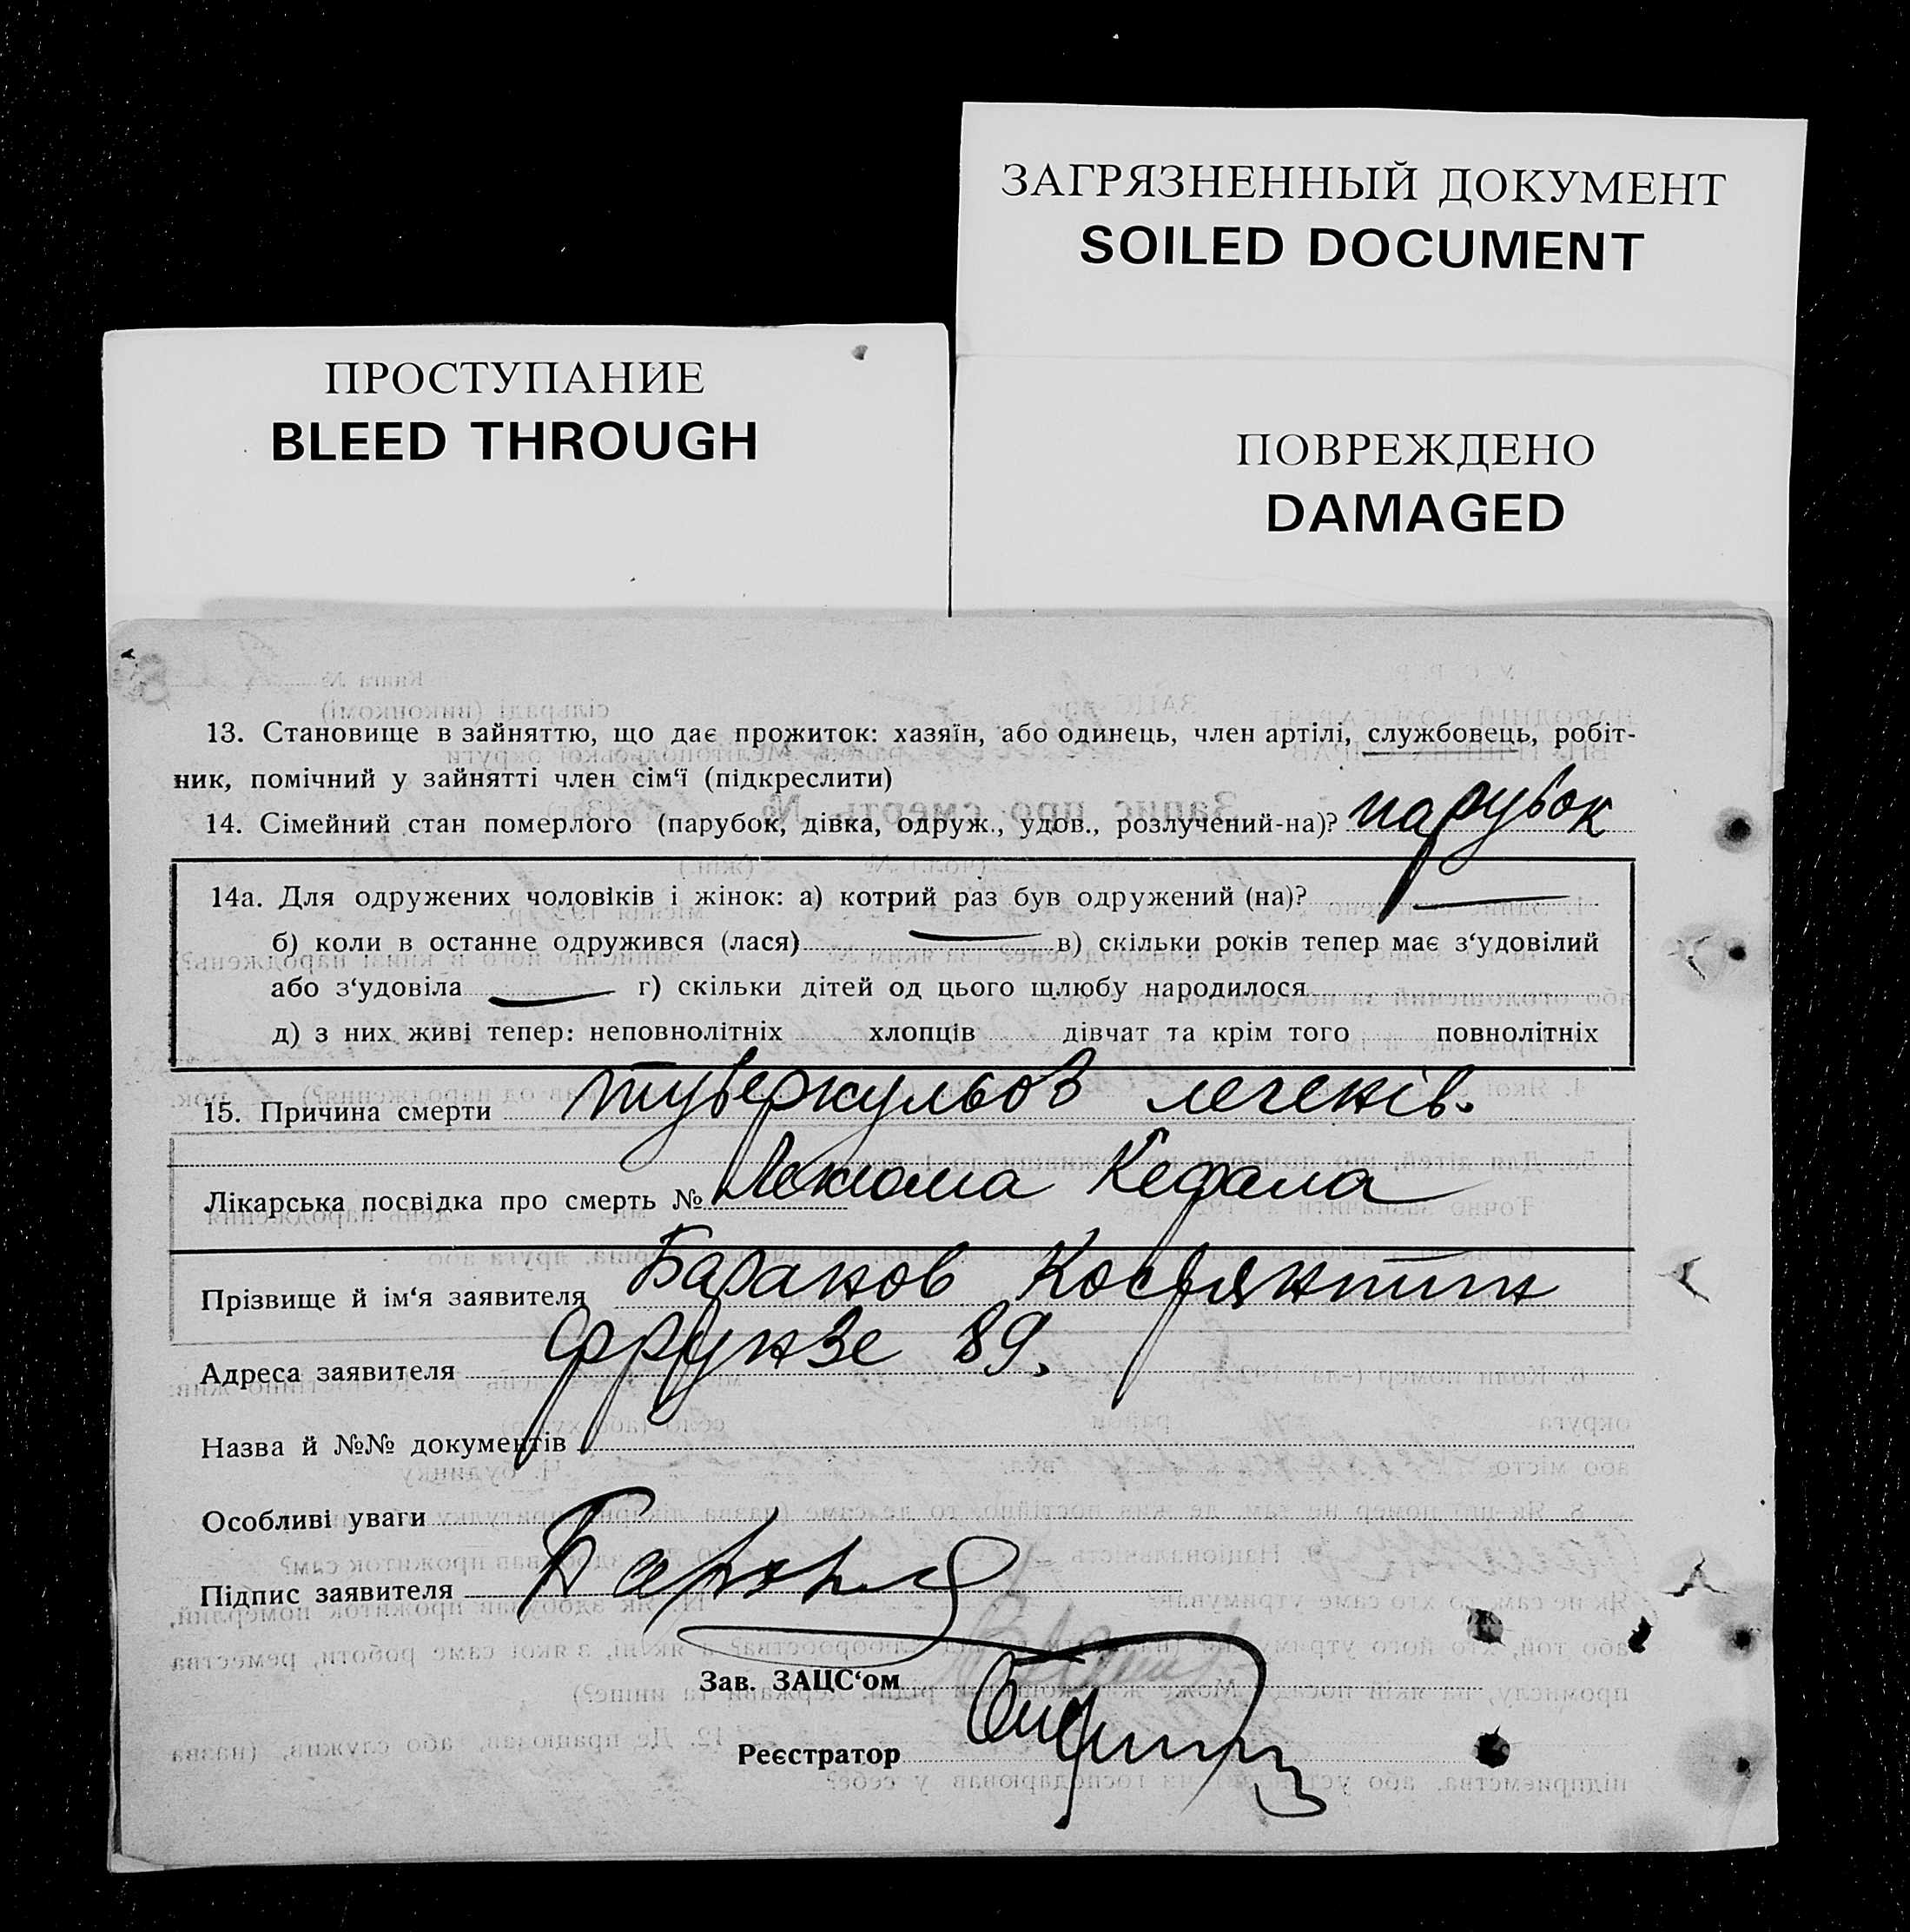 ЗАГРЯЗНЕННЫЙ ДОКУМЕНТ
SOILED DOCUMENT
ПРОСТУПАНИЕ
BLEED THROUGH
ПОВРЕЖДЕНО
DAMAGED
13. Становище в зайняттю, що дає прожиток: хазяїн, або одинець, член артілі, службовець, робіт-
ник, помічний у зайнятті член сім‘ї (підкреслити)
14. Сімейний стан померлого (парубок, дівка, одруж., удов., розлучений-на)? парубок
14а. Для одружених чоловіків і жінок: а) котрий раз був одружений (на)? —
б) коли в останне одружився (лася) — в) скільки років тепер має з‘удовілий
або з‘удовіла — г) скільки дітей од цього шлюбу народилося
д) з них живі тепер: неповнолітніх хлопців дівчат та крім того повнолітніх
15. Причина смерти туберкульоз легенів.
Лікарська посвідка про смерть №
Прізвище й ім‘я заявителя Баранов Костянтин
Адреса заявителя Фрунзе 89.
Назва й №№ документів
Особливі уваги
Підпис заявителя
Зав. ЗАЦС‘ом
Реєстратор